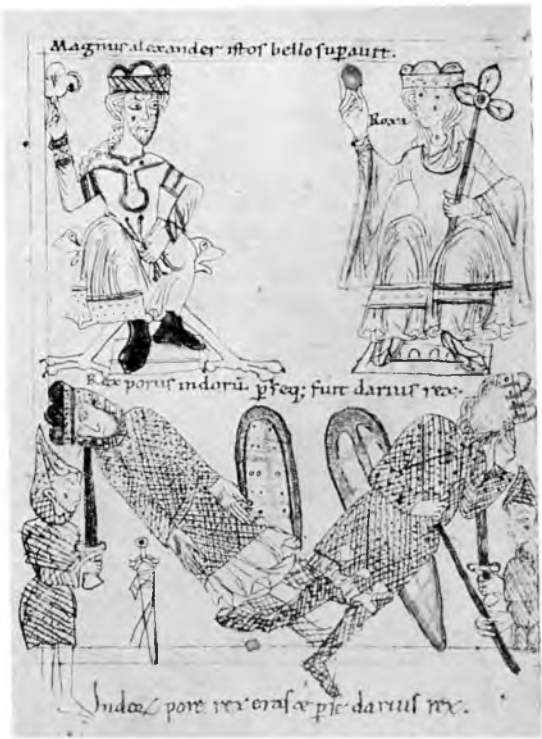 Magnus alexander istos bello supauit.
Roxa
Rex porus indorū pseq; fuit darius rex.
pore rex eras darius rex.